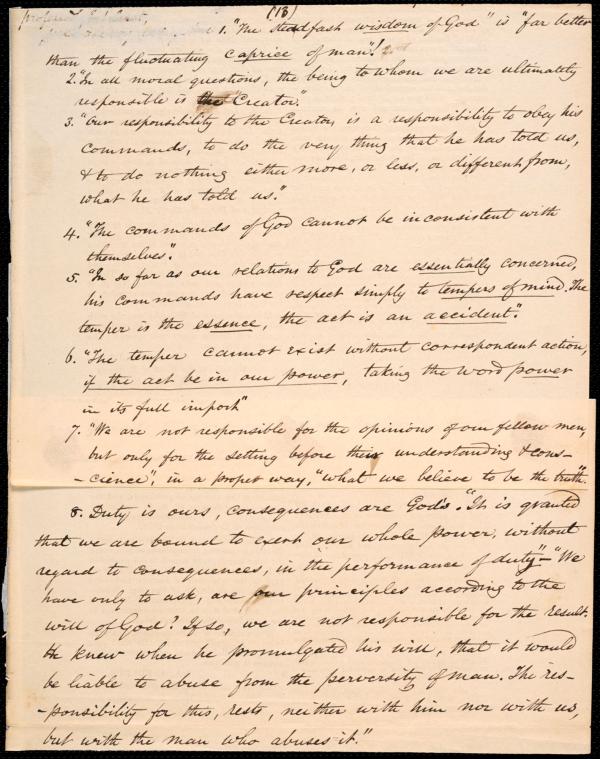 (18)
1. "The steadfast wisdom of God" is "far better
than the fluctuating caprice of man"!
2. "In all moral questions, the being to whom we are ultimately
responsible is the Creator".
3. "Our responsibility to the Creator, is a responsibility to obey his
commands, to do the very thing that he has told us,
& to do nothing either more, or less, or different from,
what he has told us."
4. "The commands of God cannot be inconsistent with
themselves".
5. "In so far as our relations to God are essentially concerned,
his commands have respect simply to tempers of mind. The
temper is the essence, the act is an accident".
6. "The temper cannot exist without correspondent action,
if the act be in our power, taking the word power
in its full import"
7. "We are not responsible for the opinions of our fellow men,
but only for the setting before their understanding & cons-
-cience", in a proper way, "what we believe to be the truth".
8. Duty is ours, consequences are God's. "It is granted
that we are bound to exert our whole power, without
regard to consequences, in the performance of duty" - "We
have only to ask, are our principles according to the
will of God? If so, we are not responsible for the result.
He knew when he promulgated his will, that it would
be liable to abuse from the perversity of man. The res-
-ponsibility for this, rests, neither with him nor with us,
but with the man who abuses it."